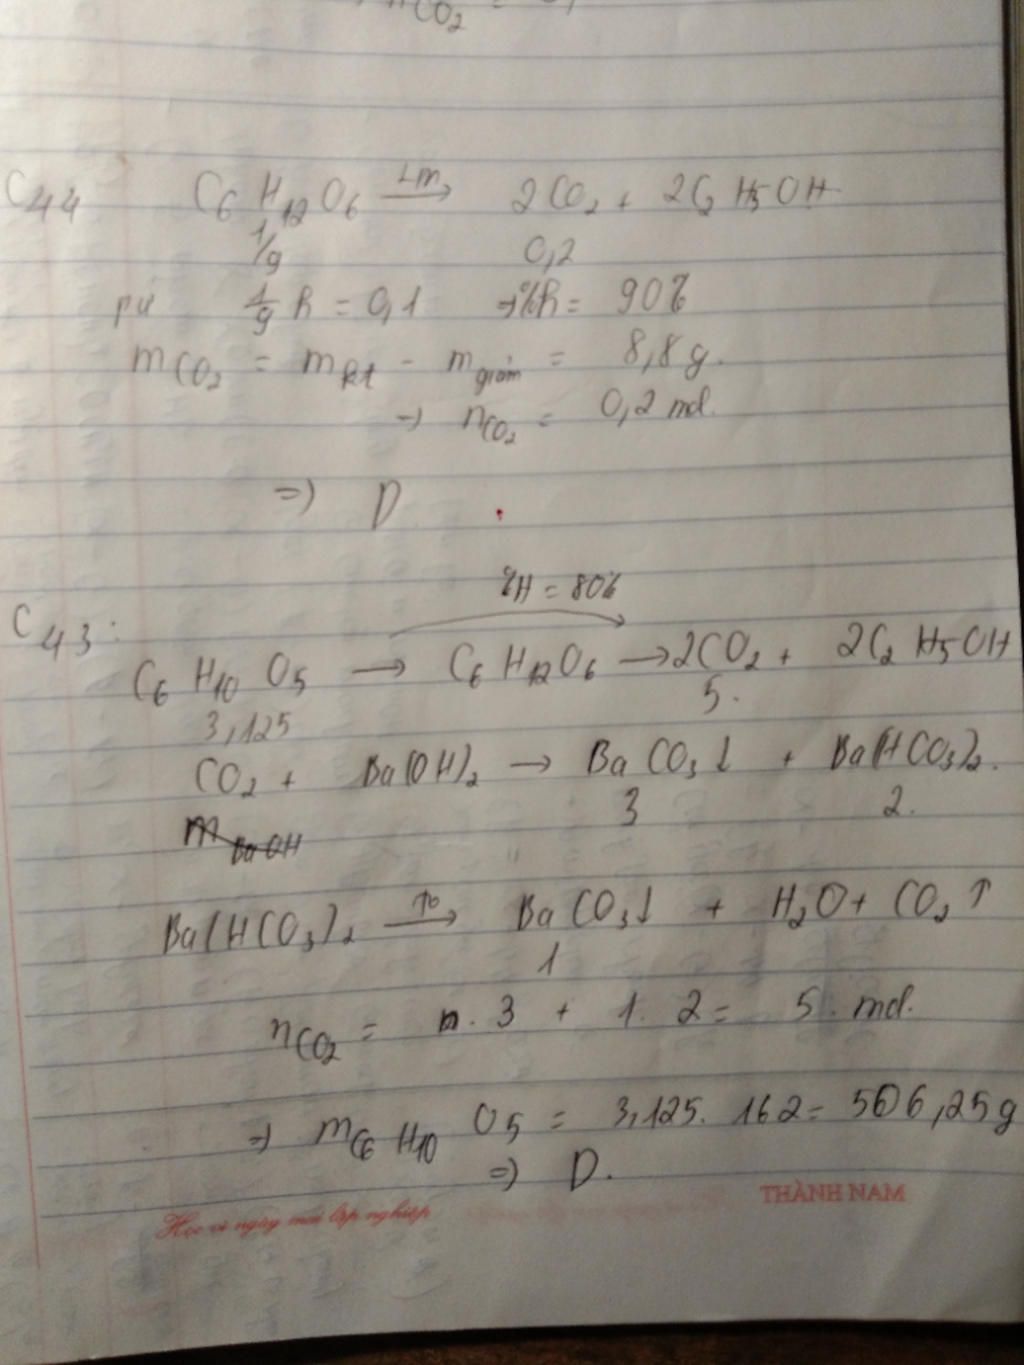 CO₂ =
C44 C₆H₁₂O₆ →^{LM} 2CO₂ + 2C₂H₅OH
1/9 0,2
pứ 1/9 h = 0,1 → %h = 90%
mCO₂ = mkt - mgiảm = 8,8g.
→ nCO₂ = 0,2 mol.
=> D
%H = 80%
C43: C₆H₁₀O₅ → C₆H₁₂O₆ → 2CO₂ + 2C₂H₅OH
3,125 5.
CO₂ + Ba(OH)₂ → BaCO₃↓ + Ba(HCO₃)₂.
3 2.
m BaOH
Ba(HCO₃)₂ →^{t°} BaCO₃↓ + H₂O + CO₂↑
1
nCO₂ = . 3 + 1. 2 = 5 mol.
=> mC₆H₁₀O₅ = 3,125. 162 = 506,25g
=> D.
THÀNH NAM
Học vì ngày mai lập nghiệp